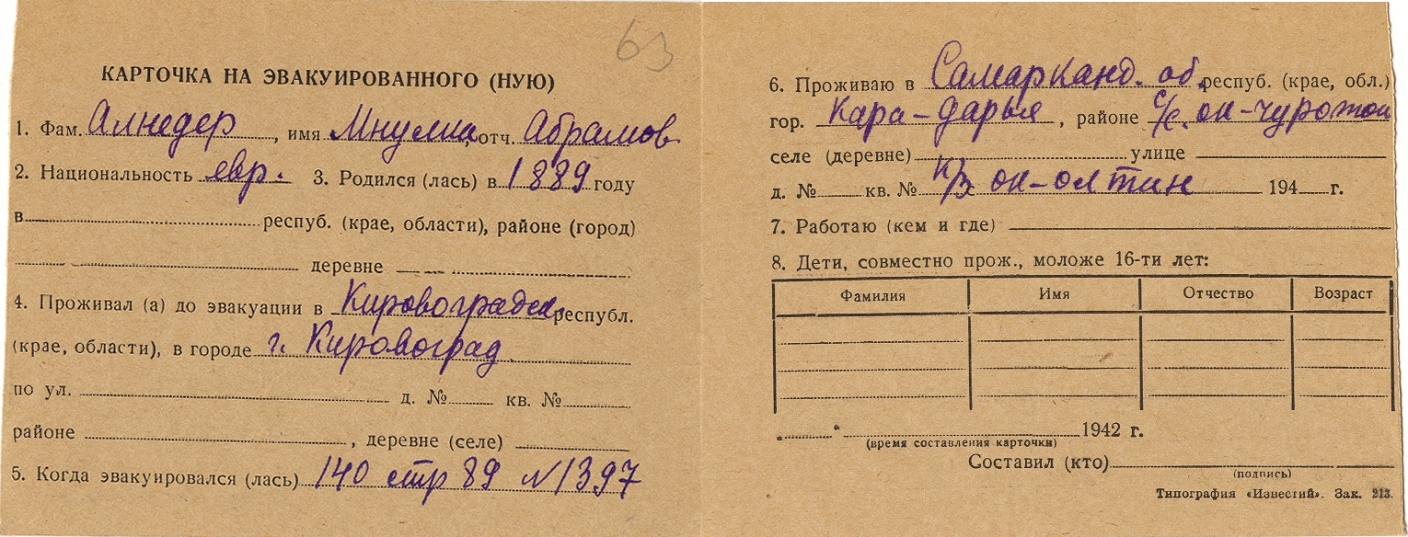 63
КАРТОЧКА НА ЭВАКУИРОВАННОГО (НУЮ)
1. Фам. Алнедер, имя Мнулиа, отч. Абрамов
2. Национальность евр. 3. Родился (лась) в 1889 году
в респуб. (крае, области), районе (город)
деревне
4. Проживал (а) до эвакуации в Кировоградск. республ.
(крае, области), в городе г. Кировоград
по ул. д. № кв. №
районе , деревне (селе)
5. Когда эвакуировался (лась) 140 стр 89 №1397
6. Проживаю в Самарканд. об. респуб. (крае, обл.)
гор. Кара-дарья, районе с/с. ок-чуротои
селе (деревне) улице
д. № кв. № к/з ок-олтин 194 г.
7. Работаю (кем и где)
8. Дети, совместно прож., моложе 16-ти лет:
Фамилия Имя Отчество Возраст
" " 1942 г.
(время составления карточки)
Составил (кто)
(подпись)
Типография «Известий». Зак. 213.